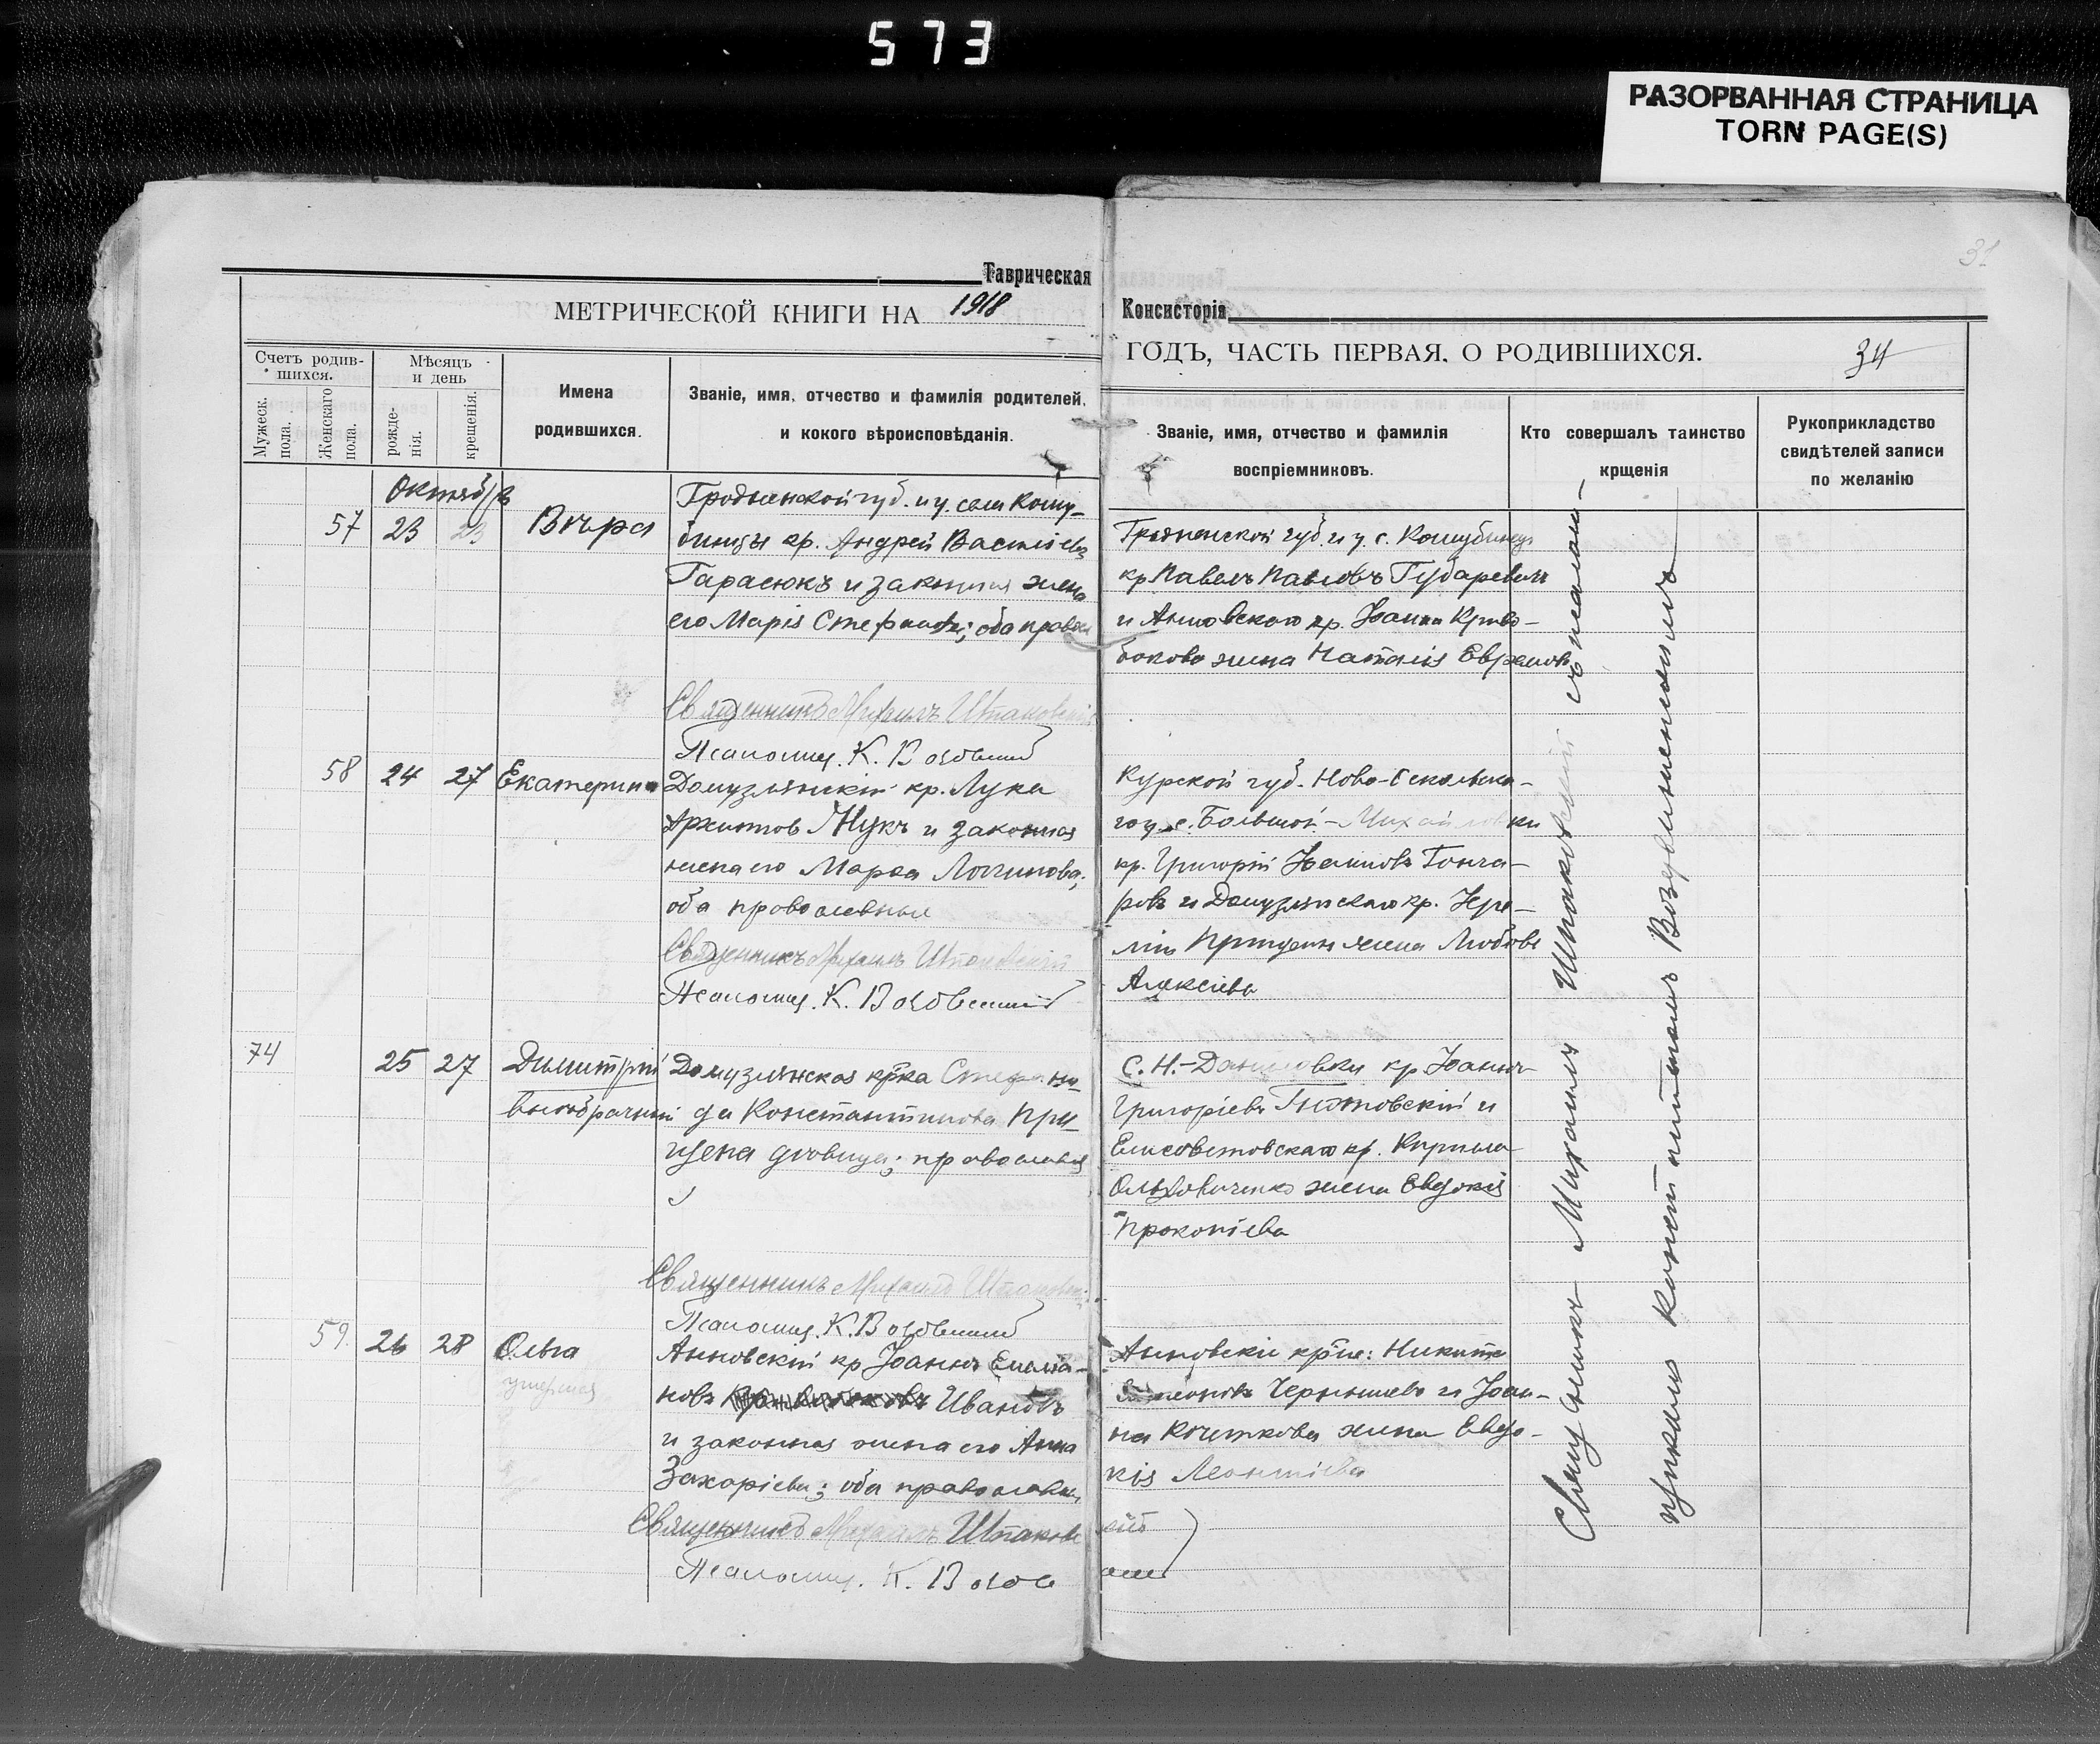 573
РАЗОРВАННАЯ СТРАНИЦА
TORN PAGE(S)
31
Таврическая
Консисторія
МЕТРИЧЕСКОЙ КНИГИ НА 1918
ГОДЪ, ЧАСТЬ ПЕРВАЯ. О РОДИВШИХСЯ.
34
Счетъ родив-
шихся.
Мужеск.
пола.
Женскаго
пола.
Мѣсяцъ
и день
рожде-
нія.
крещенія.
Имена
родившихся.
Званіе, имя, отчество и фамилія родителей,
и кокого вѣроисповѣданія.
Званіе, имя, отчество и фамилія
воспріемниковъ.
Кто совершалъ таинство
крщенія
Рукоприкладство
свидѣтелей записи
по желанію
Октябрь
57 23 23 Вѣра
Гродненской губ. и у. села Кошу-
бинцы кр. Андрей Василіевъ
Тарасюкъ и законная жена
его Марія Стефанова; оба правосл
Священникъ Михаилъ Шпаковскій
Псаломщ. К.
Гродненской губ. и у. с. Кошубинцы
кр Павелъ Павловъ Губаревичъ
и Анновскаго кр. Іоанна Криво-
бокова жена Наталія
58 24 27 Екатерина
Домузлянскій кр. Лука
Архиповъ Жукъ и законная
жена его Марѳа Логинова;
оба православные
Священникъ Михаилъ Шпаковскій
Псаломщ. К.
Курской губ. Ново-Оскольска-
го у. с. Большой-Михайловки
кр. Григорій Іоанновъ Гонча-
ровъ и Домузлянскаго кр. Іере-
міи Прищепы жена Любовь
Алексіева
74 25 27 Димитрій
внѣбрачный
Домузлянская кр-ка Стефани-
да Константинова При-
щепа дѣвица; православная
Священникъ Михаилъ Шпаковскій
Псаломщ. К.
С. Н.-Даниловки кр Іоаннъ
Григоріевъ и
Елисаветовскаго кр. Кирилла
жена Евдокія
Прокопіева
59. 26 28 Ольга
умершая
Анновскій кр Іоаннъ Емелья-
новъ Ивановъ
и законная жена его Анна
Захаріева; оба православны
Священникъ Михаилъ Шпаковскій
Псаломщ. К.
Анновскіе кр-не: Никита
Чернышевъ и Іоан-
на Кочеткова жена Евдо-
кія Леонтіева
Священникъ Михаилъ Шпаковскій съ псалом-
щикомъ Константиномъ